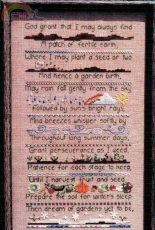 God grant that I may always find
A patch of fertile earth,
Where I may plant a seed or two
And hence a garden birth.
May rain fall gently from the sky
Followed by sun's bright rays,
And breezes whisper softly by
Throughout long summer days.
Grant perseverance as I weed
Patience for each stage to keep
Until I harvest fruit and seed
Prepare the soil for winter's sleep
Then dream of gardens yet to be,